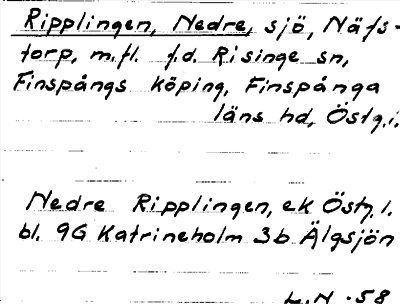 Ripplingen, Nedre, sjö, Näfs-
torp, m.fl. f.d. Risinge sn,
Finspångs köping, Finspånga
läns hd, Östg.l.
Nedre Ripplingen, ek Östg. l.
bl. 9G Katrineholm 3b Älgsjön
L.N. 58